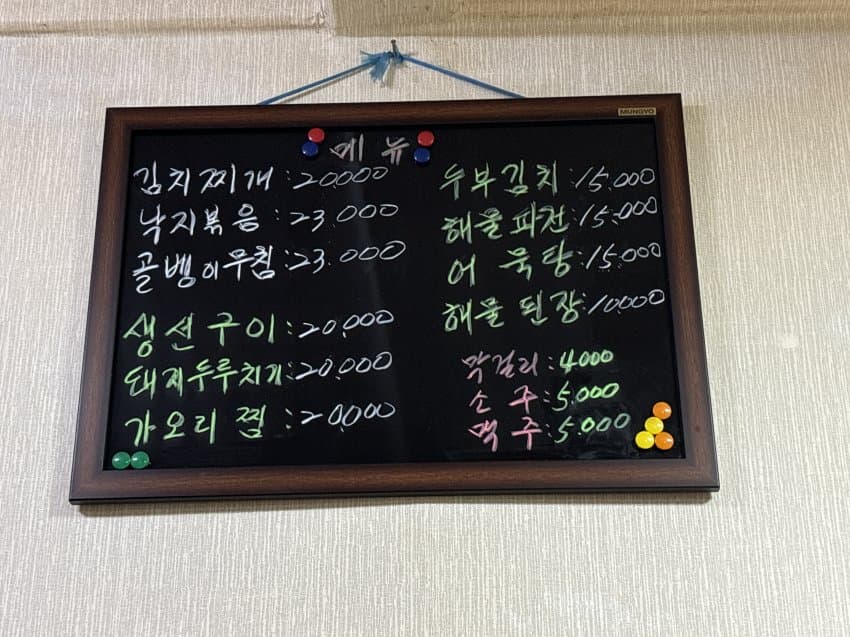 MUNGYO
메 뉴
김치찌개:20,000
낙지볶음:23,000
골뱅이무침:23,000
생선구이:20,000
돼지두루치기:20,000
가오리찜:20,000
두부김치:15,000
해물파전:15,000
어묵탕:15,000
해물된장:10,000
막걸리:4,000
소 주:5,000
맥 주:5,000